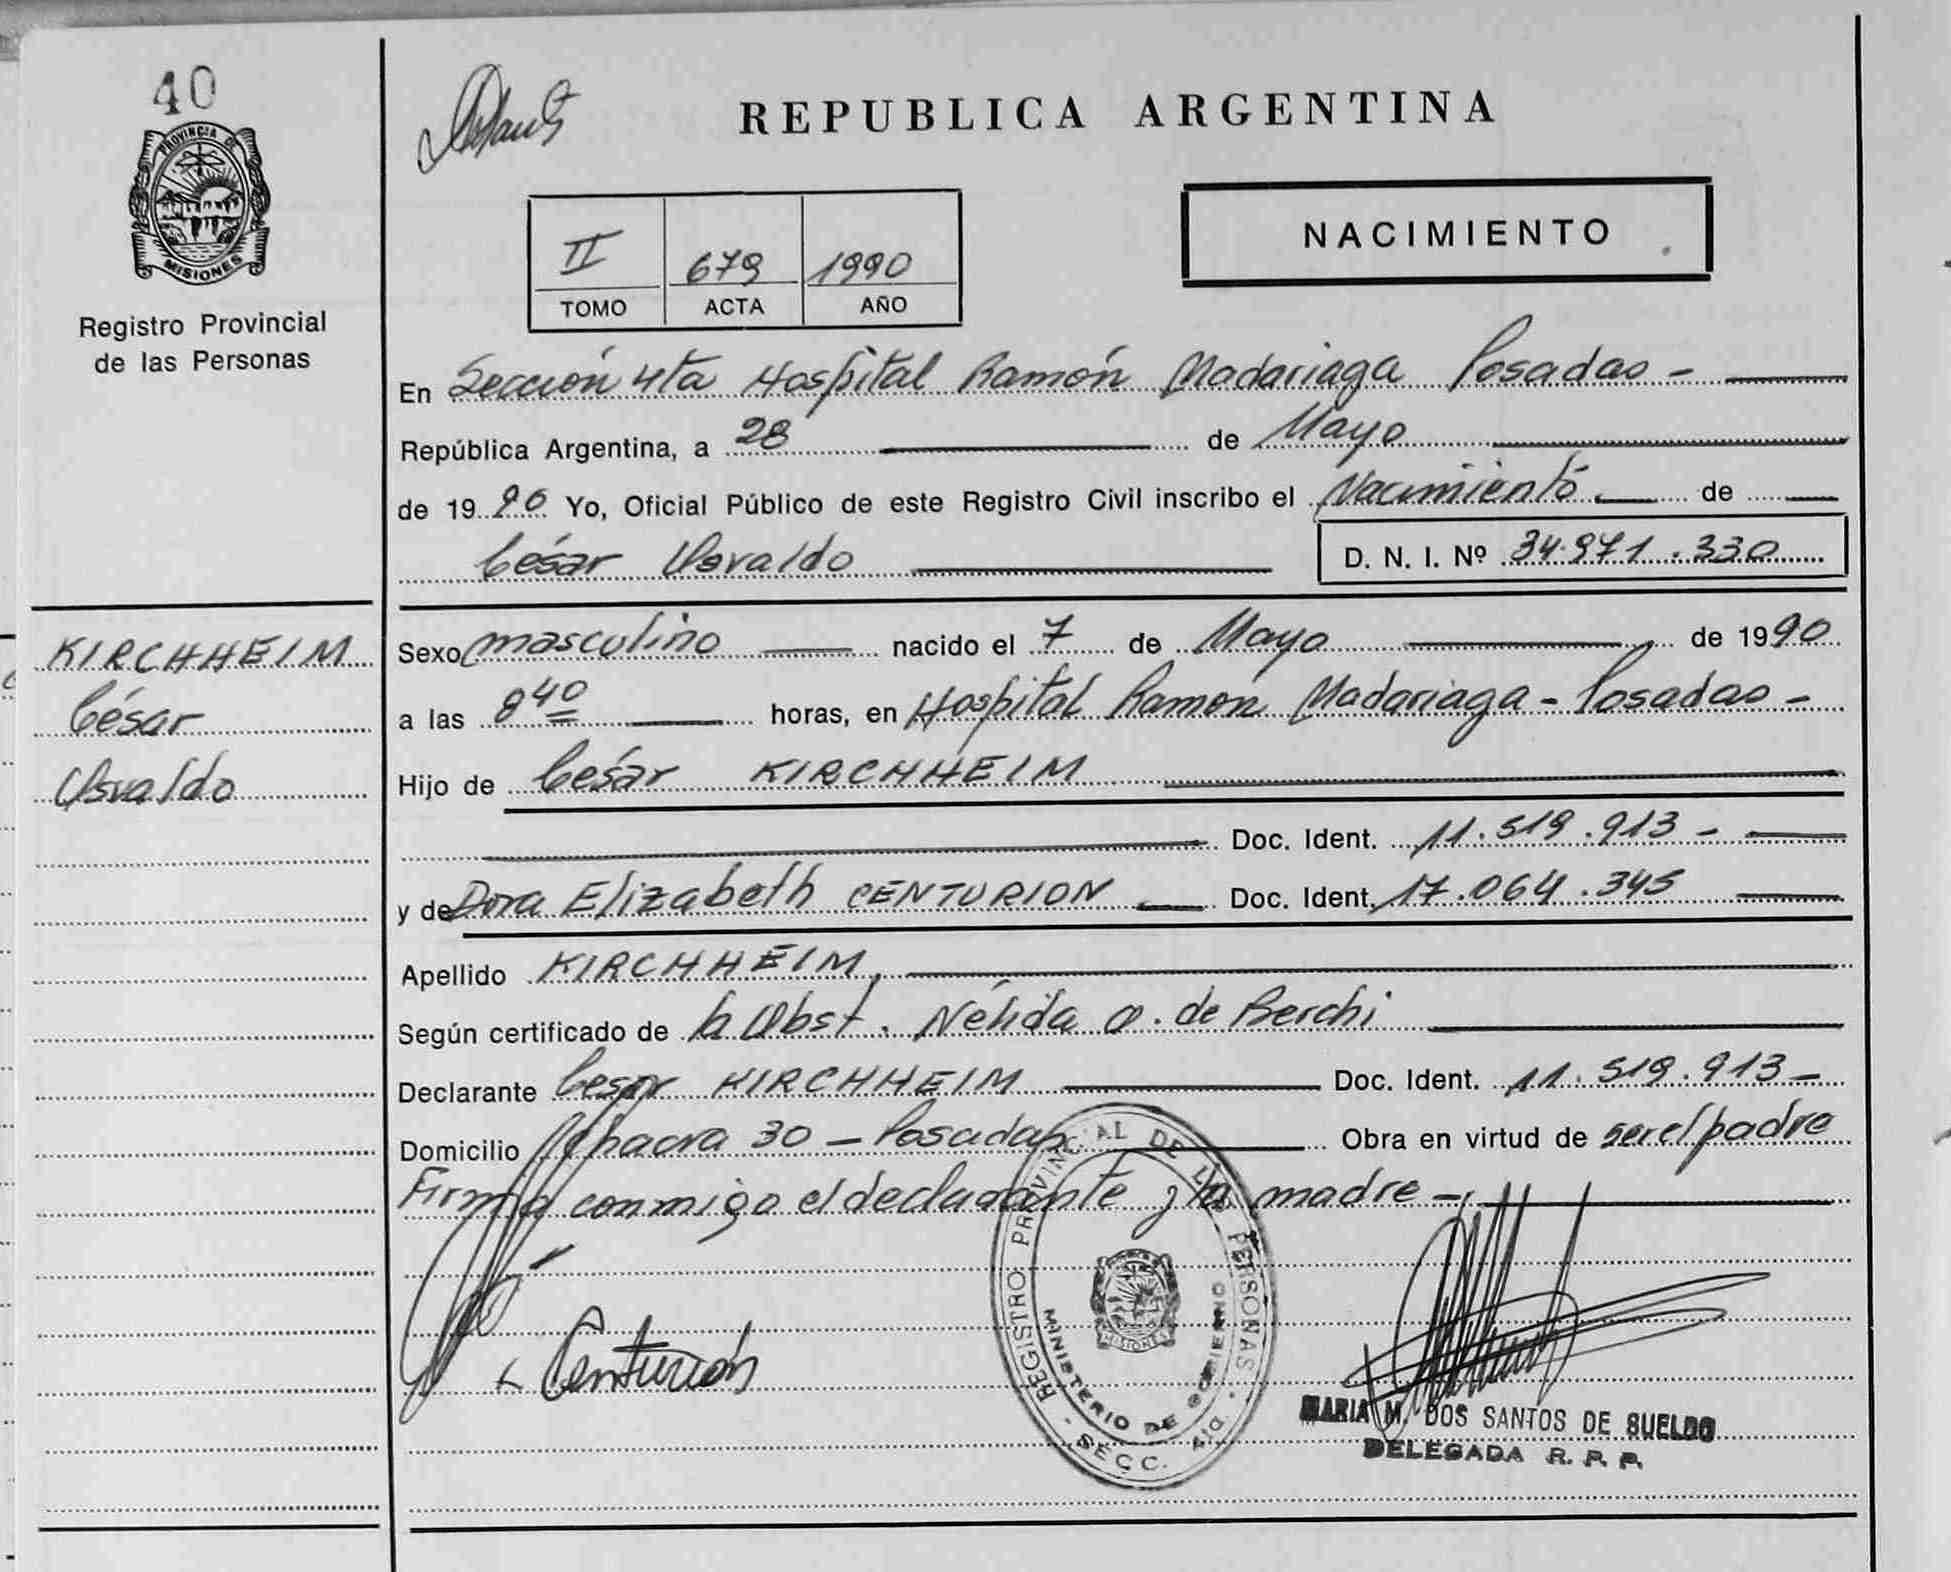 40
PROVINCIA DE
MISIONES
Registro Provincial
de las Personas
KIRCHHEIM
César
Osvaldo
REPUBLICA ARGENTINA
II 679 1990
TOMO ACTA AÑO
NACIMIENTO
En Sección 4ta Hospital Ramón Madariaga Posadas -
República Argentina, a 28 de Mayo
de 1990 Yo, Oficial Público de este Registro Civil inscribo el Nacimiento de
César Osvaldo D. N. I. Nº 34.971.330
Sexo masculino nacido el 7 de Mayo de 1990
a las 8 40 horas, en Hospital Ramón Madariaga - Posadas -
Hijo de César KIRCHHEIM
Doc. Ident. 11.519.913 -
y de Dora Elizabeth CENTURION Doc. Ident. 17.064.345
Apellido KIRCHHEIM
Según certificado de la Obst. Nélida O. de Berchi
Declarante Cesar KIRCHHEIM Doc. Ident. 11.519.913 -
Domicilio Chacra 30 - Posadas Obra en virtud de ser el padre
Firma conmigo el declarante y la madre -
Centurión
REGISTRO PROVINCIAL DE LAS PERSONAS
MINISTERIO DE GOBIERNO
MISIONES
SECC. 4ta
MARIA M. DOS SANTOS DE SUELDO
DELEGADA R. P. P.